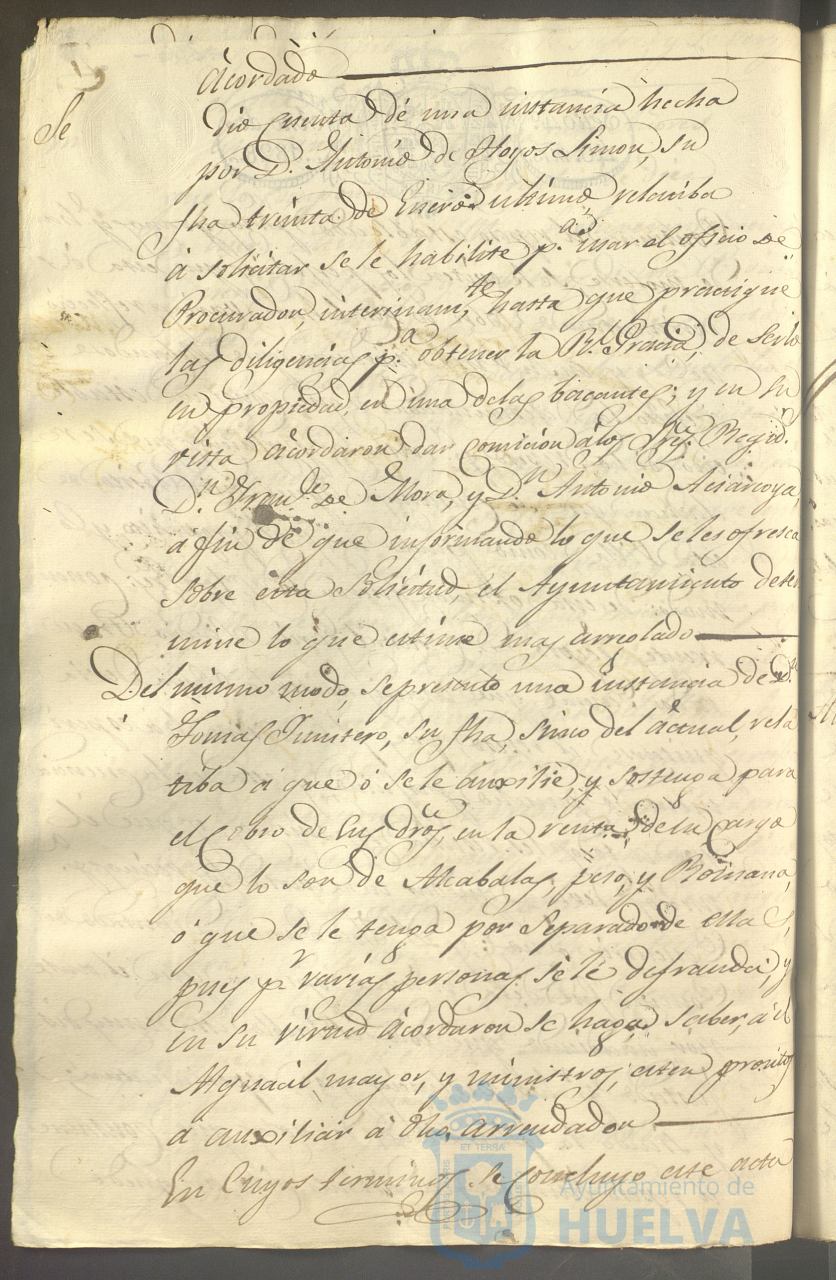 Acordado
Se dio Cuenta de una instancia hecha
por D. Antonio de Hoyos Limon, su
fha treinta de Enero ultimo relatiba
á solicitar se le habilite p.ª usar el oficio de
Procurador, interinam.te hasta que practique
las diligencias p.ª obtener la R.l Gracia, de Serlo
en propiedad, en una delas bacantes; y en su
vista Acordaron dar comicion álos Sres. Regid.
D.n Fran.co de Mora, y D.n Antonio
a fin de que informando lo que se les ofresca
sobre esta Solicitud, el Ayuntamiento deter
mine lo que estime mas arreglado
Del mismo modo, se presento una instancia de D.n
Tomas Quintero, su fha, sinco del actual, rela
tiba a que ó se le auxilie, y sostenga para
el Cobro de sus dros, en la renta de su Cargo
que lo son de Alcabalas, peso, y Romana,
ó que se le tenga por Separado de ellas,
pues p.r varias personas se le defrauda, y
en su virtud Acordaron se haga saber, á el
Alguacil mayor, y ministros, esten prontos
a auxiliar á dho, arrendador
En Cuyos terminos se Concluyo este acta
ET TERRA
Ayuntamiento de
HUELVA